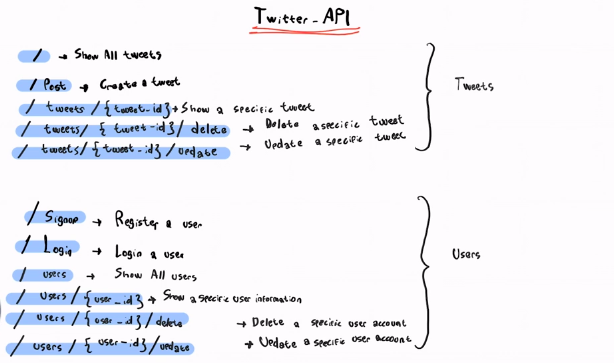 Twitter_API
/ → Show All tweets
/ Post → Create a tweet
/ tweets / {tweet_id} → Show a specific tweet
/ tweets / {tweet-id} / delete → Delete a specific tweet
/ tweets / {tweet-id} / update → Update a specific tweet
Tweets
/ Signup → Register a user
/ Login → Login a user
/ users → Show All users
/ users / {user_id} → Show a specific user information
/ users / {user_id} / delete → Delete a specific user account
/ users / {user-id} / update → Update a specific user account
Users